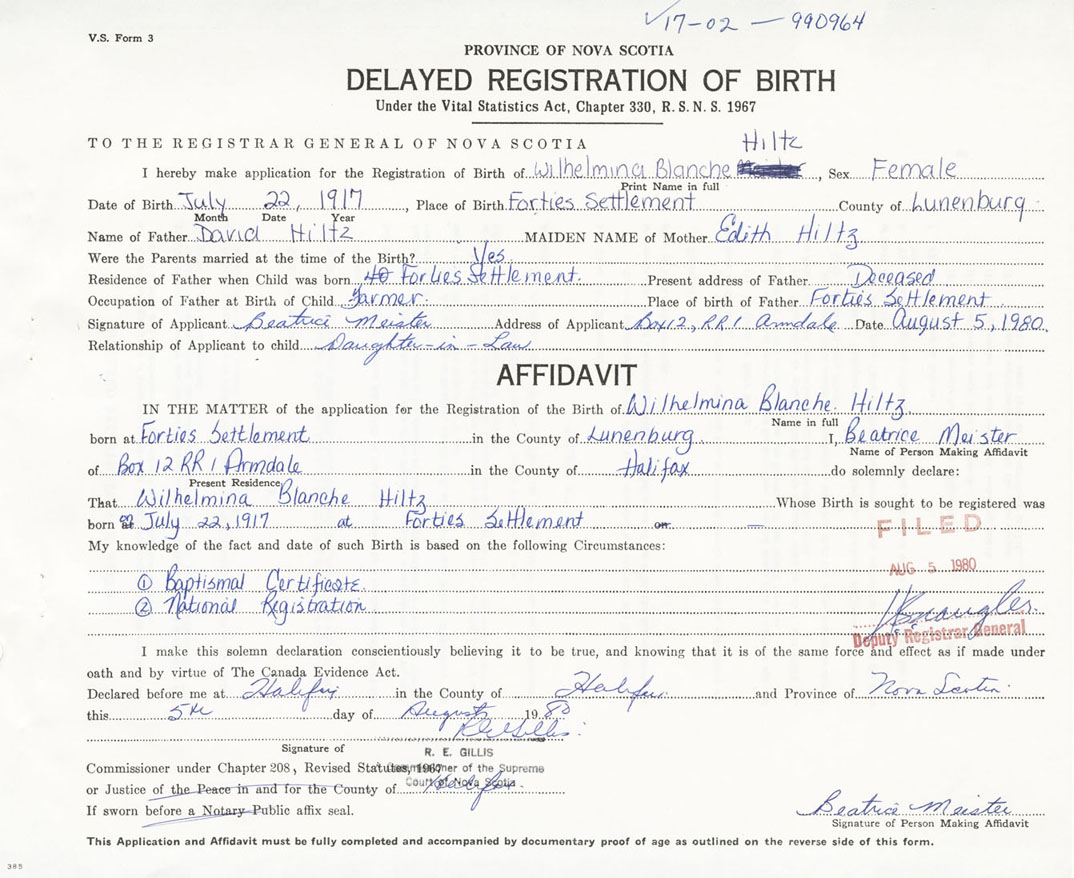 17-02 — 990964
V.S. Form 3
PROVINCE OF NOVA SCOTIA
DELAYED REGISTRATION OF BIRTH
Under the Vital Statistics Act, Chapter 330, R. S. N. S. 1967
TO THE REGISTRAR GENERAL OF NOVA SCOTIA
Hiltz
I hereby make application for the Registration of Birth of Wilhelmina Blanche, Sex Female
Print Name in full
Date of Birth July 22, 1917, Place of Birth Forties Settlement County of Lunenburg
Month Date Year
Name of Father David Hiltz MAIDEN NAME of Mother Edith Hiltz
Were the Parents married at the time of the Birth? Yes
Residence of Father when Child was born 40 Forties Settlement Present address of Father Deceased
Occupation of Father at Birth of Child Farmer Place of birth of Father Forties Settlement
Signature of Applicant Beatrice Meister Address of Applicant Box 12, RR1 Armdale Date August 5, 1980
Relationship of Applicant to child Daughter-in-Law
AFFIDAVIT
IN THE MATTER of the application for the Registration of the Birth of Wilhelmina Blanche Hiltz
Name in full
born at Forties Settlement in the County of Lunenburg I, Beatrice Meister
Name of Person Making Affidavit
of Box 12 RR 1 Armdale in the County of Halifax do solemnly declare:
Present Residence
That Wilhelmina Blanche Hiltz Whose Birth is sought to be registered was
born on July 22, 1917 at Forties Settlement on —
FILED
My knowledge of the fact and date of such Birth is based on the following Circumstances:
AUG 5 1980
① Baptismal Certificate
② National Registration
Deputy Registrar General
I make this solemn declaration conscientiously believing it to be true, and knowing that it is of the same force and effect as if made under
oath and by virtue of The Canada Evidence Act.
Declared before me at Halifax in the County of Halifax and Province of Nova Scotia
this 5th day of August 1980
R E Gillis
Signature of
R. E. GILLIS
Commissioner under Chapter 208, Revised Statutes, 1967
Commissioner of the Supreme
Court of Nova Scotia
or Justice of the Peace in and for the County of Halifax
If sworn before a Notary Public affix seal.
Beatrice Meister
Signature of Person Making Affidavit
This Application and Affidavit must be fully completed and accompanied by documentary proof of age as outlined on the reverse side of this form.
385